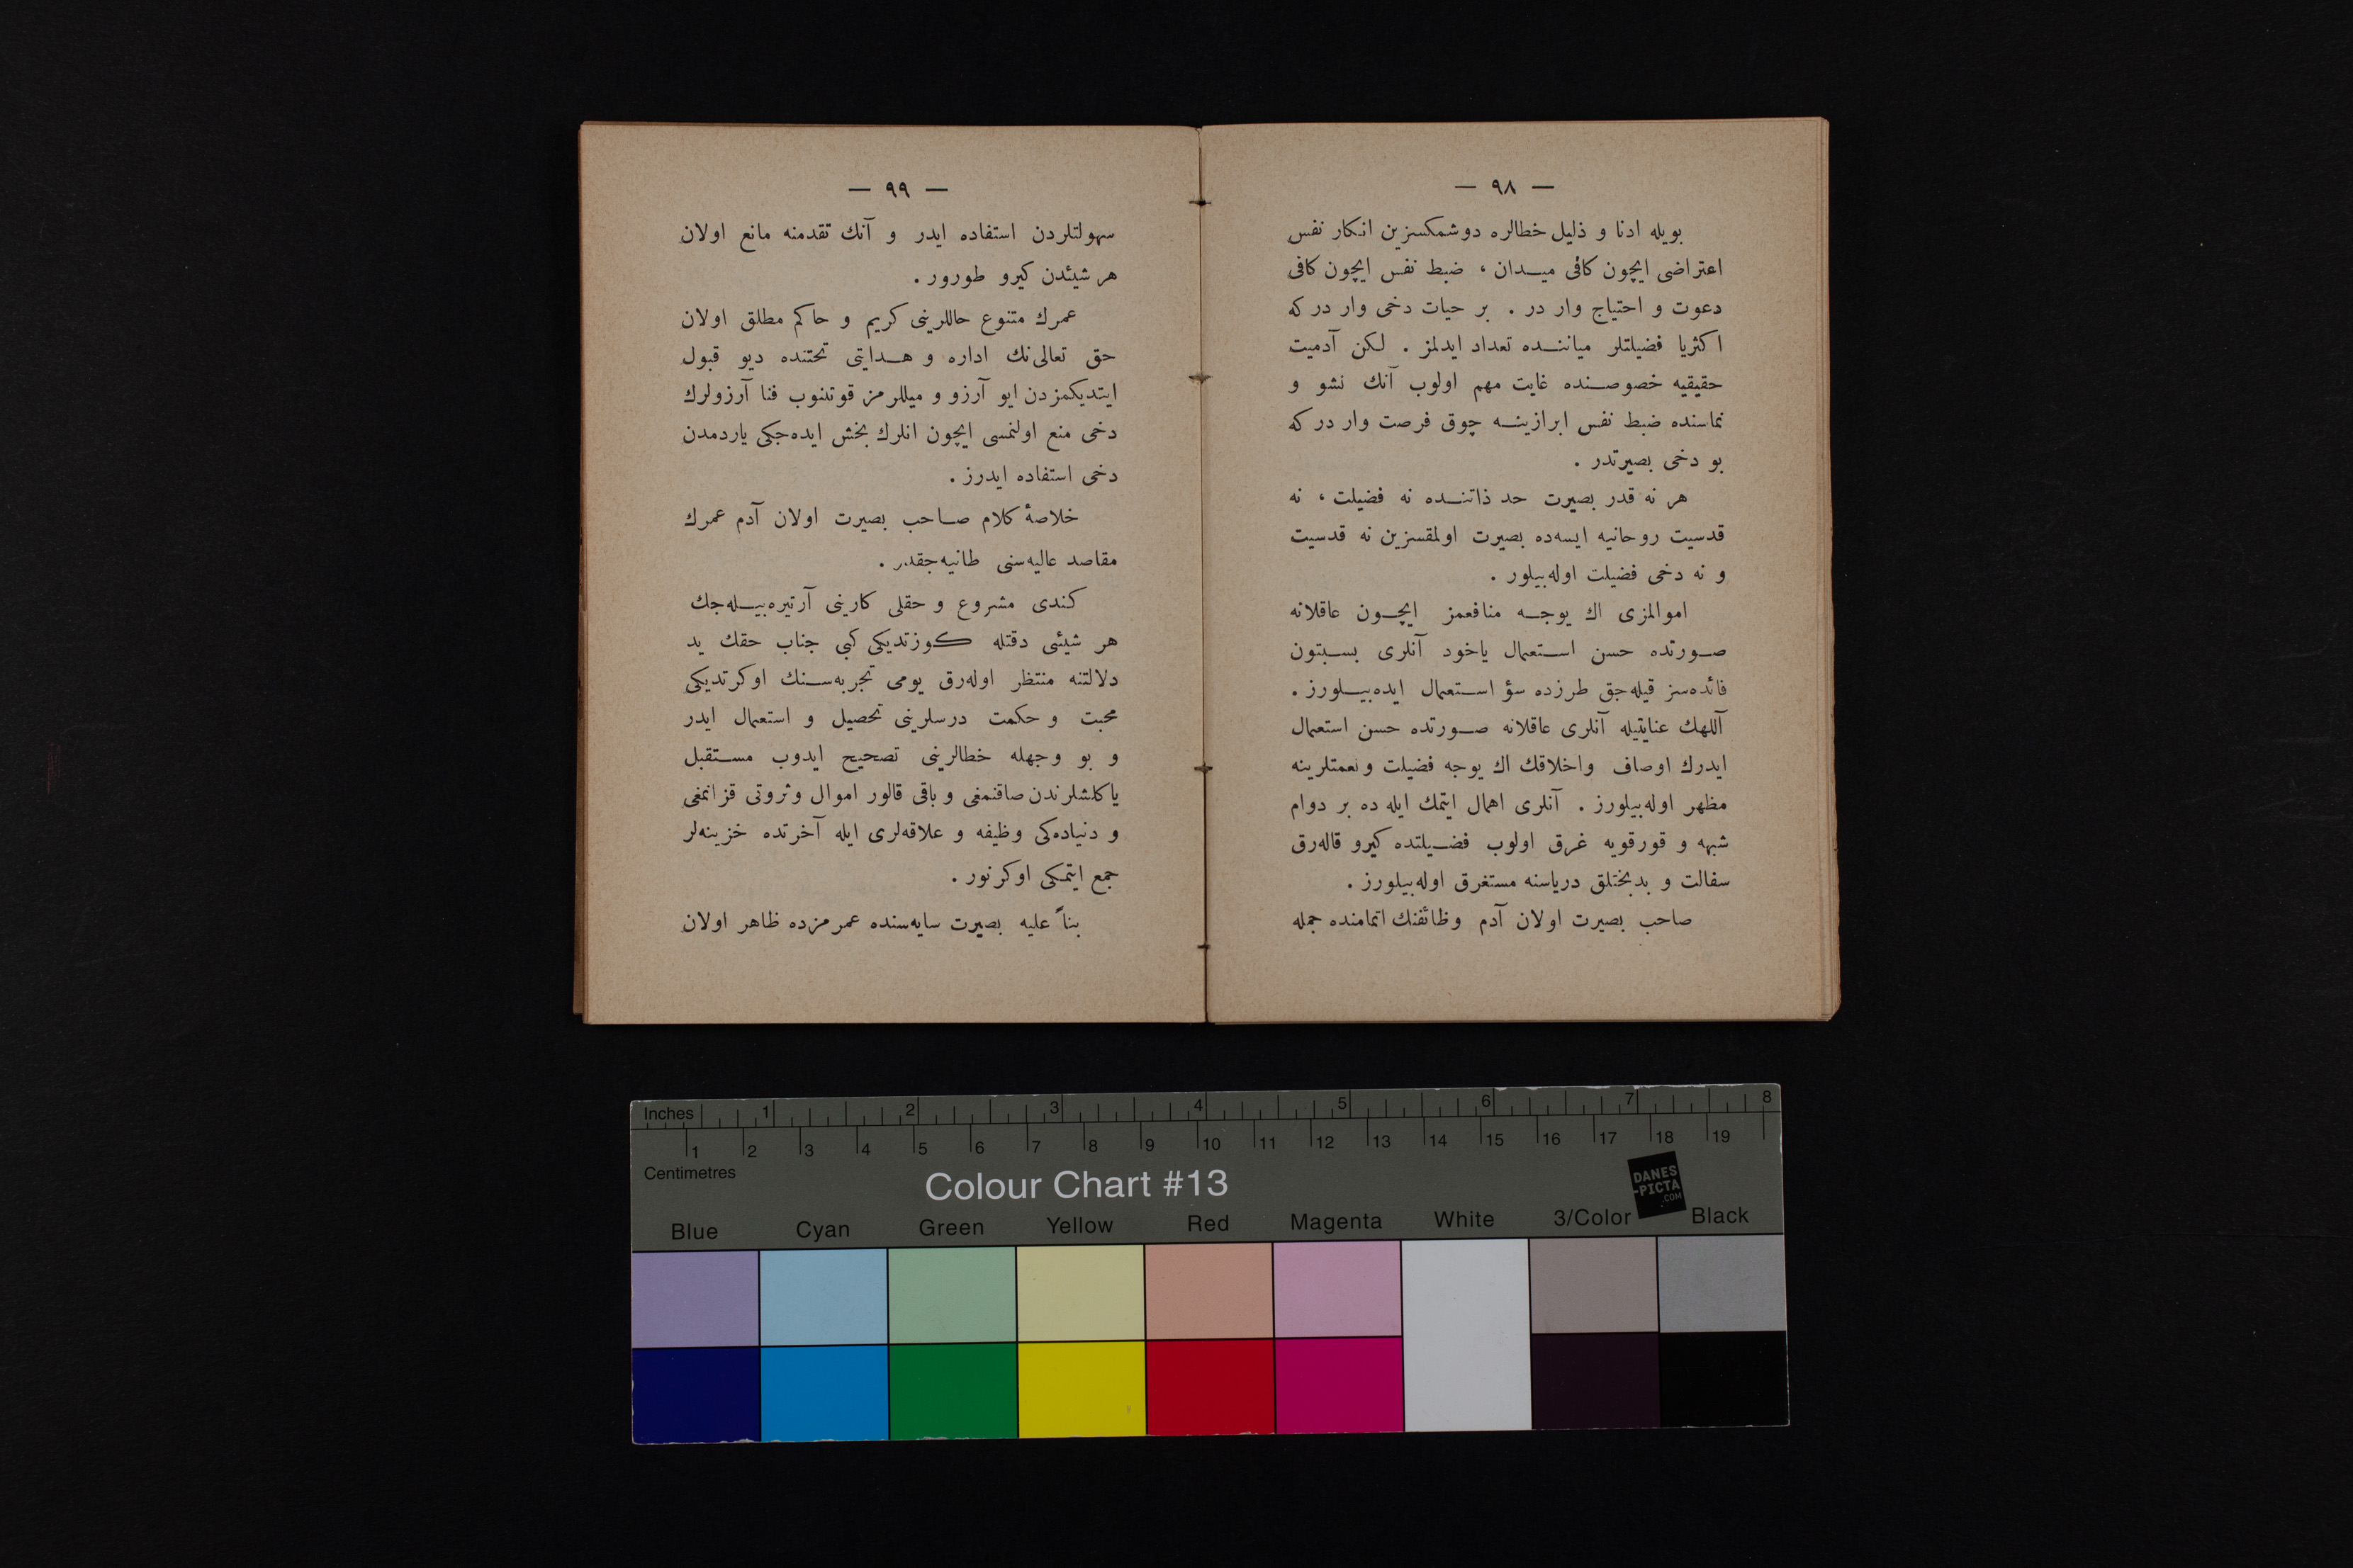 — ٩٨ —
بویله ادنا و ذلیل خطالره دوشمکسزین انکار نفس
اعتراضی ایچون کافی میدان ، ضبط نفس ایچون کافی
دعوت و احتیاج وار در . بر حیات دخی وار در که
اکثریا فضیلتلر میاننده تعداد ایدلمز . لکن آدمیت
حقیقیه خصوصنده غایت مهم اولوب آنك نشو و
نماسنده ضبط نفس ابرازینه چوق فرصت وار در که
بو دخی بصیرتدر .
هر نه قدر بصیرت حد ذاتنده نه فضیلت ، نه
قدسیت روحانیه ایسه‌ده بصیرت اولمقسزین نه قدسیت
و نه دخی فضیلت اوله‌بیلور .
اموالمزی اك یوجه منافعمز ایچون عاقلانه
صورتده حسن استعمال یاخود آنلری بسبتون
فائده‌سز قیله‌جق طرزده سؤ استعمال ایده‌بیلورز .
آللهك عنایتیله آنلری عاقلانه صورتده حسن استعمال
ایدرك اوصاف واخلاقك اك یوجه فضیلت ونعمتلرینه
مظهر اوله‌بیلورز . آنلری اهمال ایتمك ایله ده بر دوام
شبهه و قورقویه غرق اولوب فضیلتده کیرو قاله‌رق
سفالت و بدبختلق دریاسنه مستغرق اوله‌بیلورز .
صاحب بصیرت اولان آدم وظائفنك اتمامنده جمله
— ٩٩ —
سهولتلردن استفاده ایدر و آنك تقدمنه مانع اولان
هر شیئدن کیرو طورور .
عمرك متنوع حاللرینی کریم و حاکم مطلق اولان
حق تعالی‌نك اداره و هدایتی تحتنده دیو قبول
ایتدیکمزدن ایو آرزو و میللرمز قوتنوب فنا آرزولرك
دخی منع اولنمسی ایچون انلرك بخش ایده‌جکی یاردمدن
دخی استفاده ایدرز .
خلاصهٔ کلام صاحب بصیرت اولان آدم عمرك
مقاصد عالیه‌سنی طانیه‌جقدر .
کندی مشروع و حقلی کارینی آرتیره‌بیله‌جك
هر شیئی دقتله کوزتدیکی کبی جناب حقك ید
دلالتنه منتظر اوله‌رق یومی تجربه‌سنك اوکرتدیکی
محبت و حکمت درسلرینی تحصیل و استعمال ایدر
و بو وجهله خطالرینی تصحیح ایدوب مستقبل
یاکلشلرندن صاقنمغی و باقی قالور اموال وثروتی قزانمغی
و دنیاده‌کی وظیفه و علاقه‌لری ایله آخرتده خزینه‌لر
جمع ایتمکی اوکرنور .
بناً علیه بصیرت سایه‌سنده عمرمزده ظاهر اولان
Inches 1 2 3 4 5 6 7 8
1 2 3 4 5 6 7 8 9 10 11 12 13 14 15 16 17 18 19
Centimetres
Colour Chart #13
DANES
-PICTA
.COM
Blue Cyan Green Yellow Red Magenta White 3/Color Black